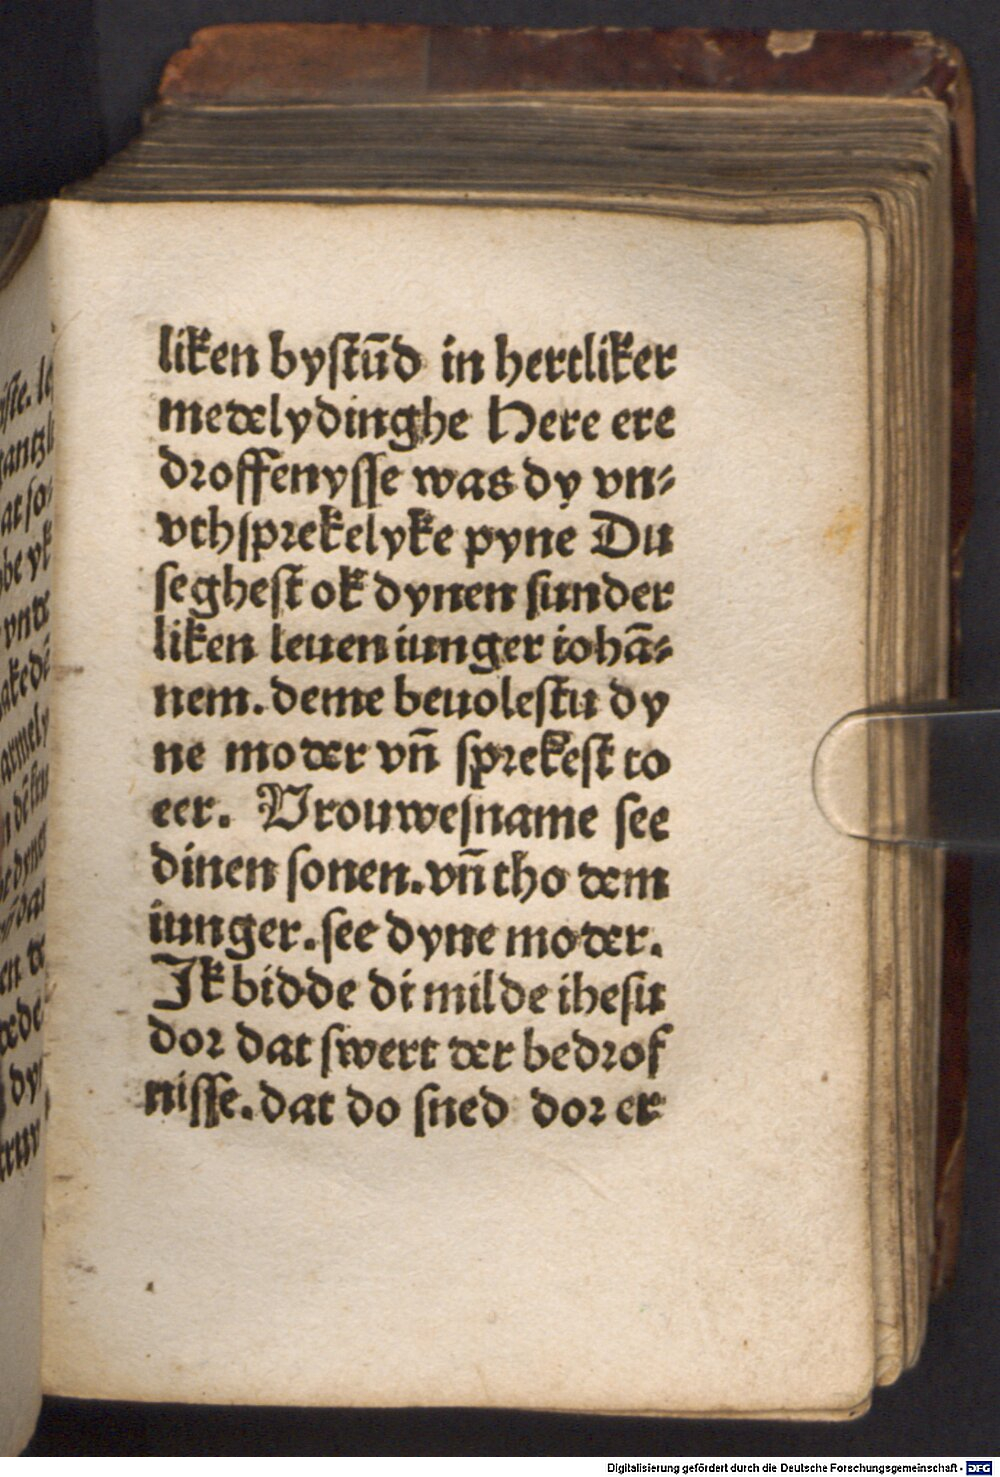 liken bystūd in hertliker
medelydinghe Here ere
droffenysse was dy vn-
vthsprekelyke pyne Du
seghest ok dynen sunder
liken leuen iunger iohā-
nem. deme beuolestu dy
ne moder vn̄ sprekest to
eer. Vrouwesname see
dinen sonen. vn̄ tho dem
iunger. see dyne moder.
Ik bidde di milde ihesu
dor dat swert der bedrof
nisse. dat do sned dor er
Digitalisierung gefördert durch die Deutsche Forschungsgemeinschaft - DFG